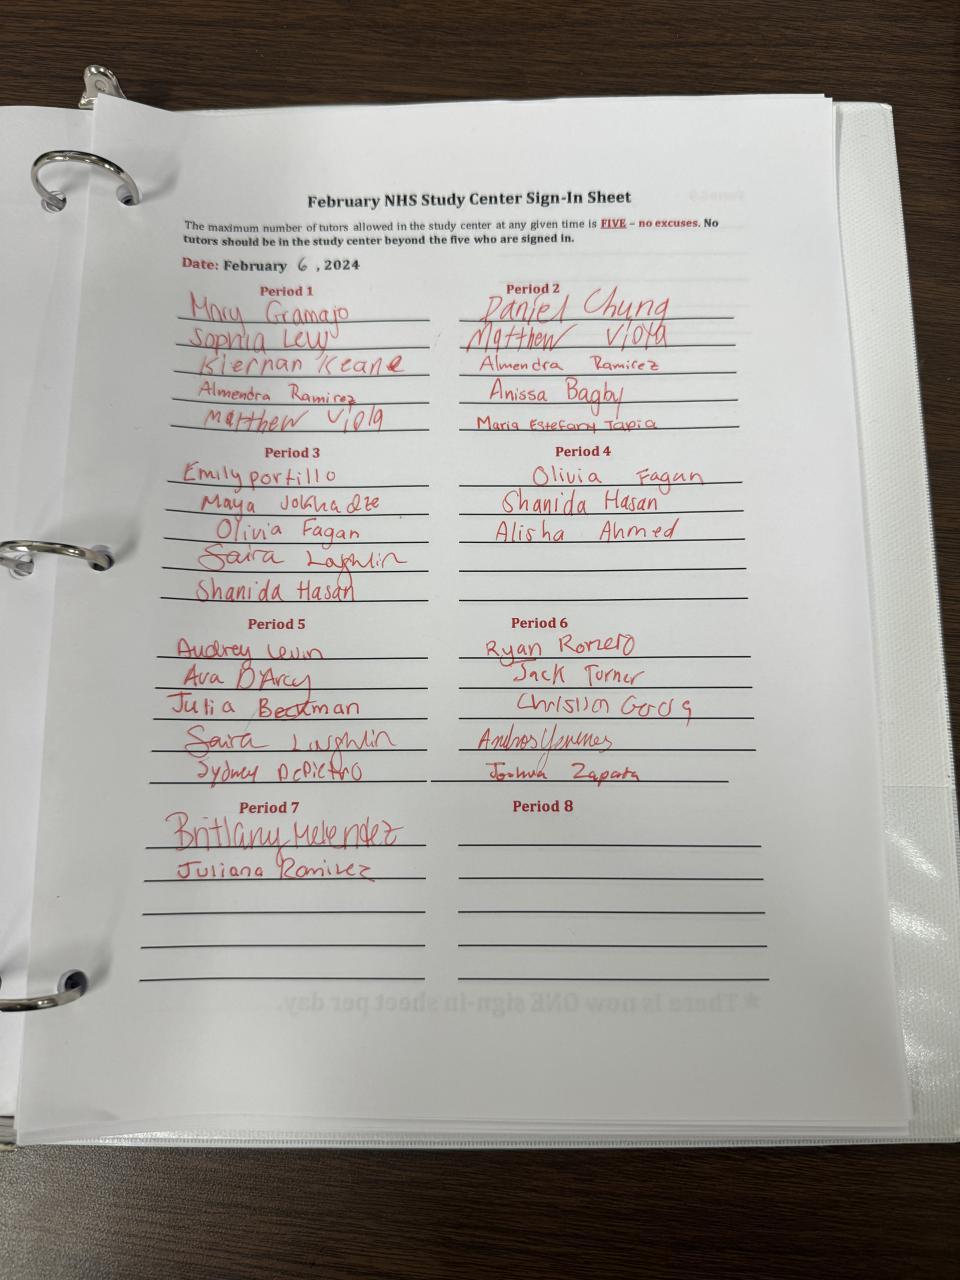 February NHS Study Center Sign-In Sheet
The maximum number of tutors allowed in the study center at any given time is FIVE – no excuses. No
tutors should be in the study center beyond the five who are signed in.
Date: February 6, 2024
Period 1
Mary Gramajo
Sophia Levy
Kiernan Keane
Almendra Ramirez
Matthew Viola
Period 2
Daniel Chung
Matthew Viola
Almendra Ramirez
Anissa Bagby
Maria Estefany Tapia
Period 3
Emily portillo
Maya Jokhadze
Olivia Fagan
Saira
Shanida Hasan
Period 4
Olivia Fagan
Shanida Hasan
Alisha Ahmed
Period 5
Audrey Levin
Ava D'Arcy
Julia Beckman
Saira
Sydney DePietro
Period 6
Ryan Romero
Jack Turner
Christian
Joshua Zapata
Period 7
Brittany Melendez
Juliana Ramirez
Period 8
* There is now ONE sign-in sheet per day.